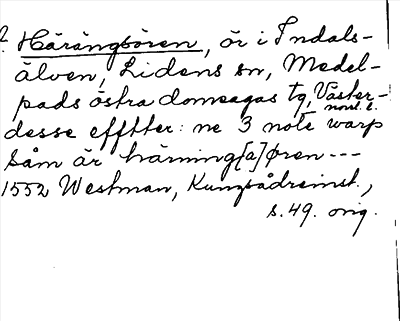 ? Härängsören, ör i Indals-
älven, Lidens sn, Medel-
pads östra domsagas tg, Väster-
norrl. l.
desse efftter: ne 3 note warp
Såm är härning[a]øren ---
1552 Westman, Kungsådreinst.,
s. 49. orig.